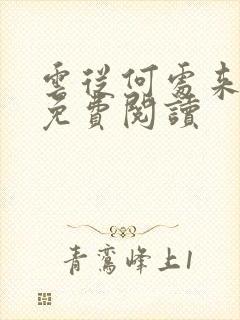 雲從何處來
免費閱讀
青鸞峰上1